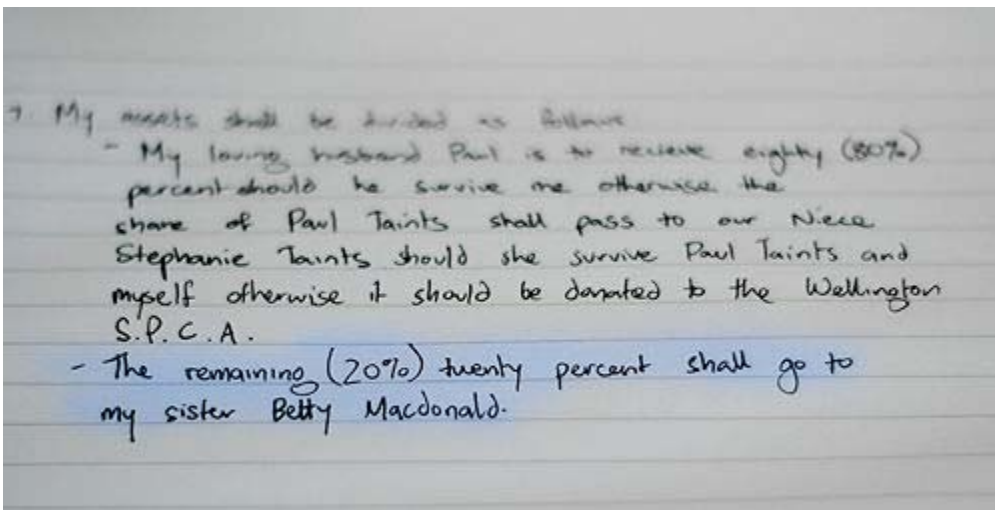 7. My assets shall be divided as follows
- My loving husband Paul is to recieve eighty (80%)
percent should he survive me otherwise the
share of Paul Taints shall pass to our Niece
Stephanie Taints should she survive Paul Taints and
myself otherwise it should be donated to the Wellington
S.P.C.A.
- The remaining (20%) twenty percent shall go to
my sister Betty Macdonald.